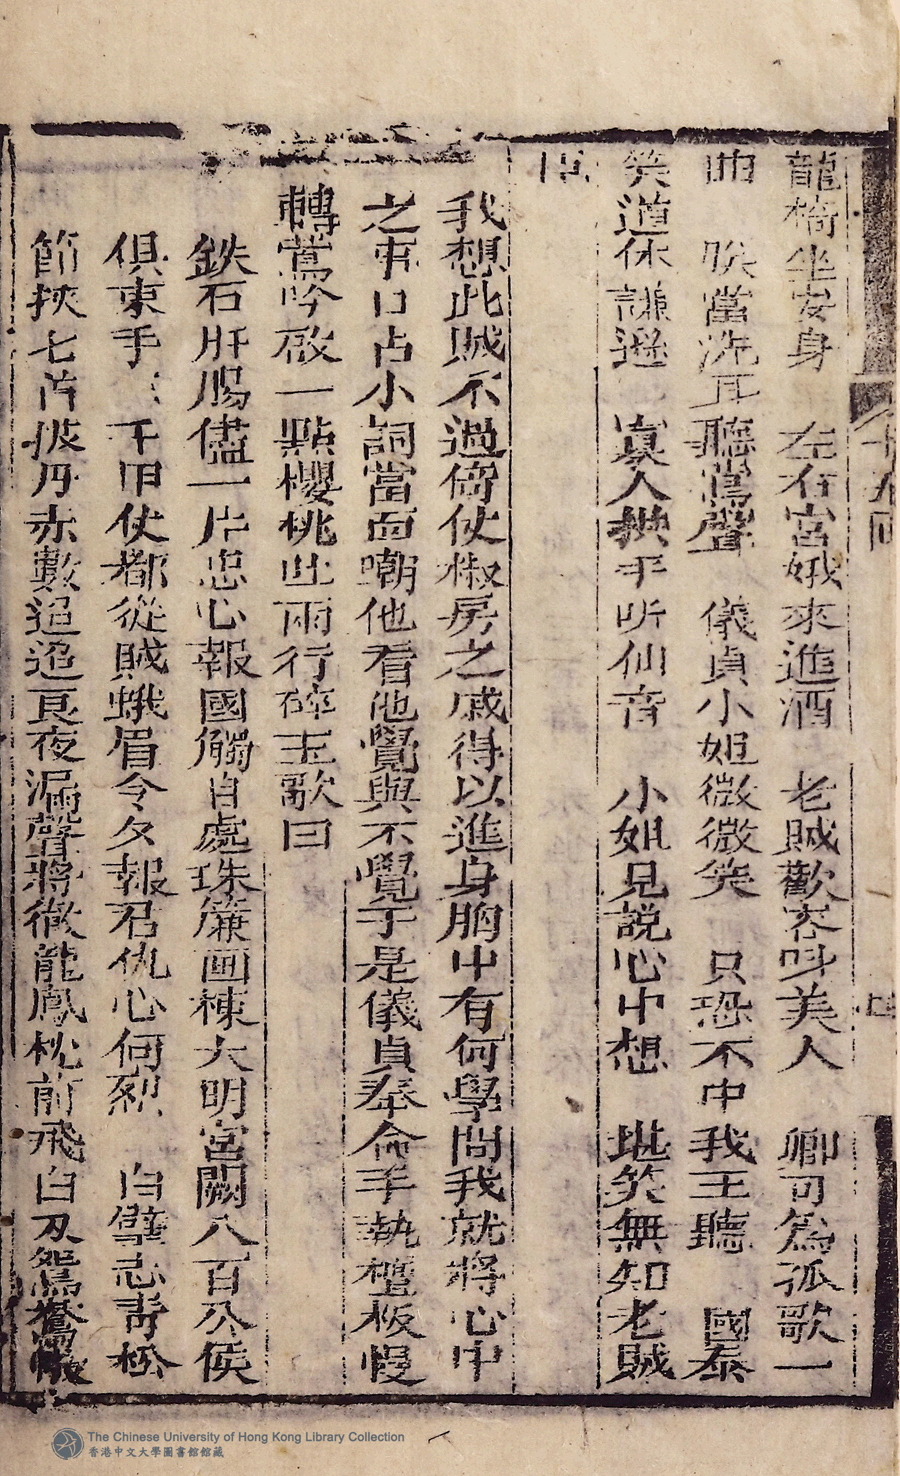 龍椅坐安身　左右宮娥來進酒　老賊歡容叫美人　卿可為孤歌一
曲　朕當洗耳聽鶯聲　儀貞小姐微微笑　只恐不中我王聽　國泰
笑道休謙遜　寡人拱手听仙音　小姐見說心中想　堪笑無知老賊
臣
我想此賊不過倚仗椒房之戚得以進身胸中有何學問我就將心中
之事口占小詞當面嘲他看他覺與不覺于是儀貞奉命手執檀板慢
轉鶯吟啟一點櫻桃吐兩行碎玉歌曰
鉄石肝腸儘一片忠心報國觸目處珠簾画棟大明宮闕八百公侯
俱束手三千甲仗都從賊蛾眉今夕報君仇心何烈　白璧志青松
節挾七首披丹赤數迢迢良夜漏聲將徹龍鳳枕前飛白刃鴛鴦
The Chinese University of Hong Kong Library Collection
香港中文大學圖書館館藏